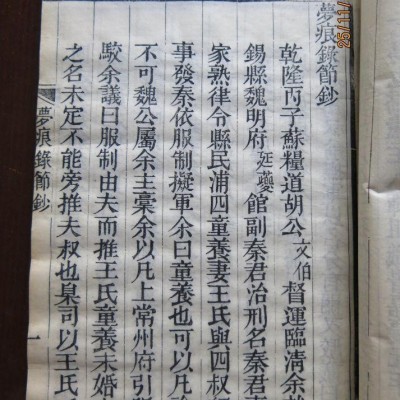 夢痕錄節鈔
乾隆丙子蘇糧道胡公文伯督運臨清余
錫縣魏明府廷夔館副秦君治刑名秦君
家熟律令縣民浦四童養妻王氏與四叔
事發秦依服制擬軍余曰童養也可以凡
不可魏公屬余主稾余以凡上常州府引
駮余議曰服制由夫而推王氏童養未婚
之名未定不能旁推夫叔也臬司以王氏
夢痕錄節鈔
一
25/11/